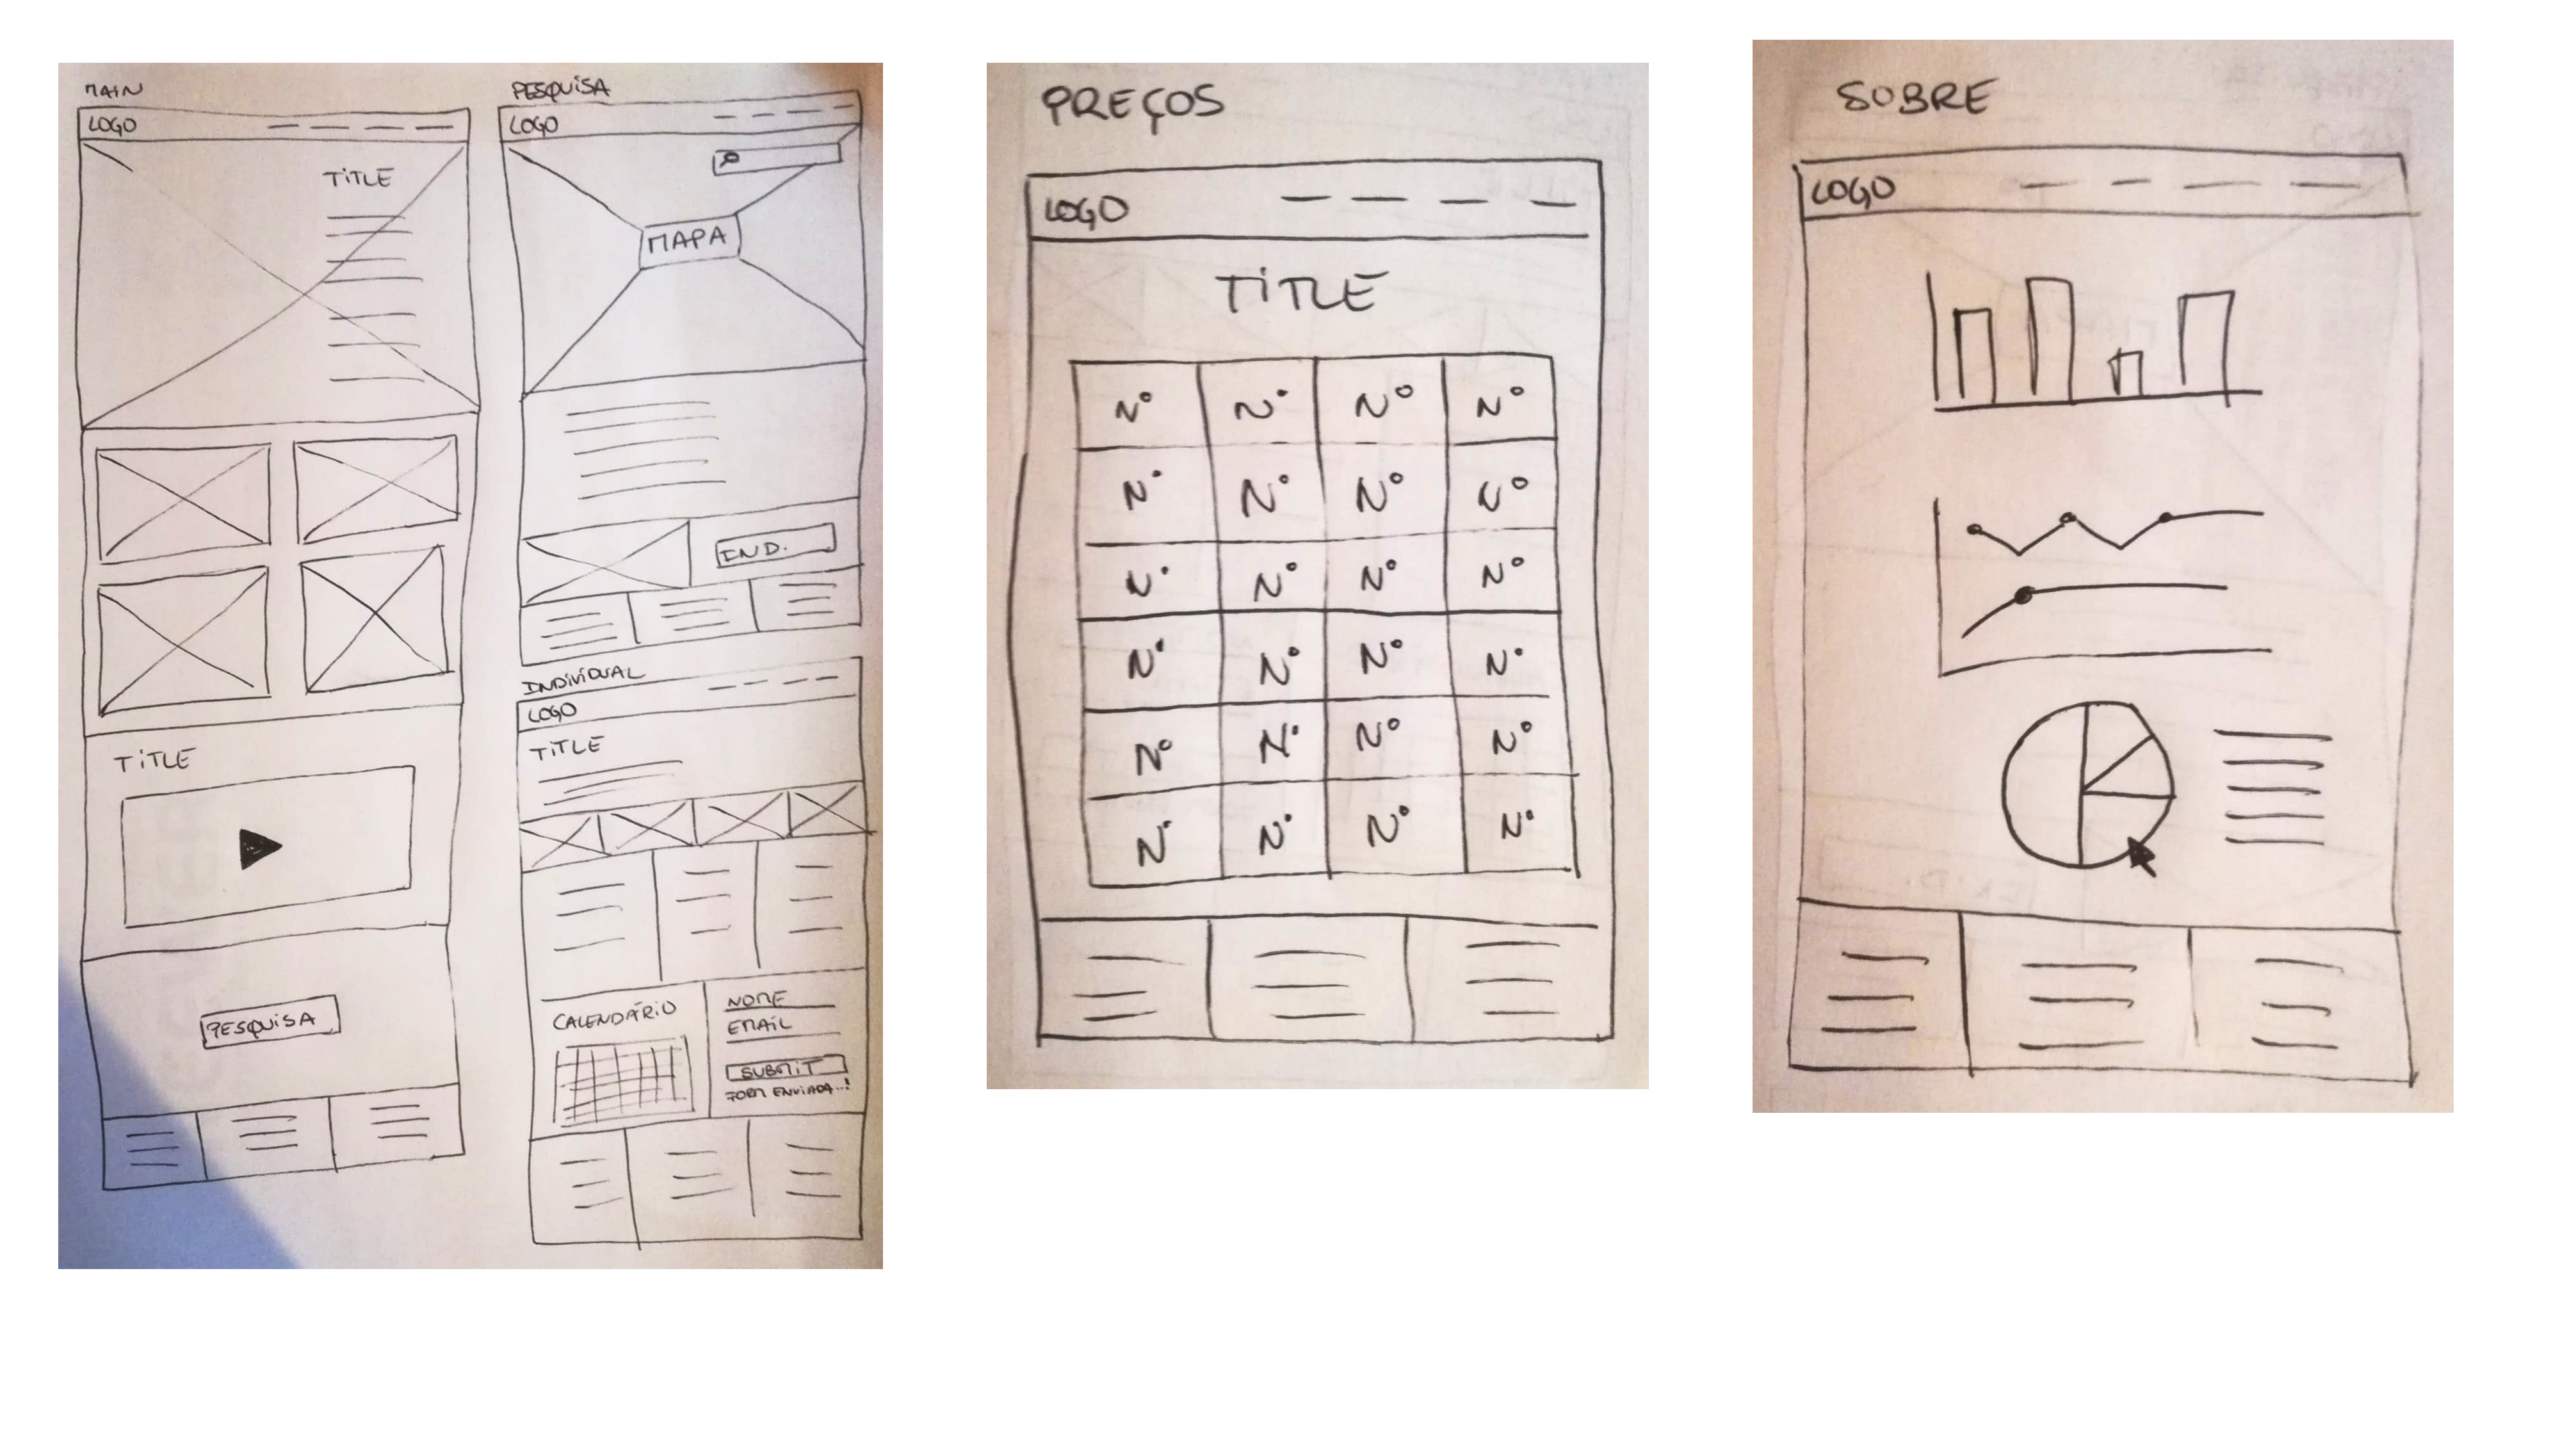 MAIN
LOGO
TITLE
TITLE
PESQUISA
PESQUISA
LOGO
MAPA
IND.
INDIVIDUAL
LOGO
TITLE
CALENDÁRIO
NOME
EMAIL
SUBMIT
FORM ENVIADA...!
PREÇOS
LOGO
TITLE
Nº Nº Nº Nº
Nº Nº Nº Nº
Nº Nº Nº Nº
Nº Nº Nº Nº
Nº Nº Nº Nº
Nº Nº Nº Nº
SOBRE
LOGO